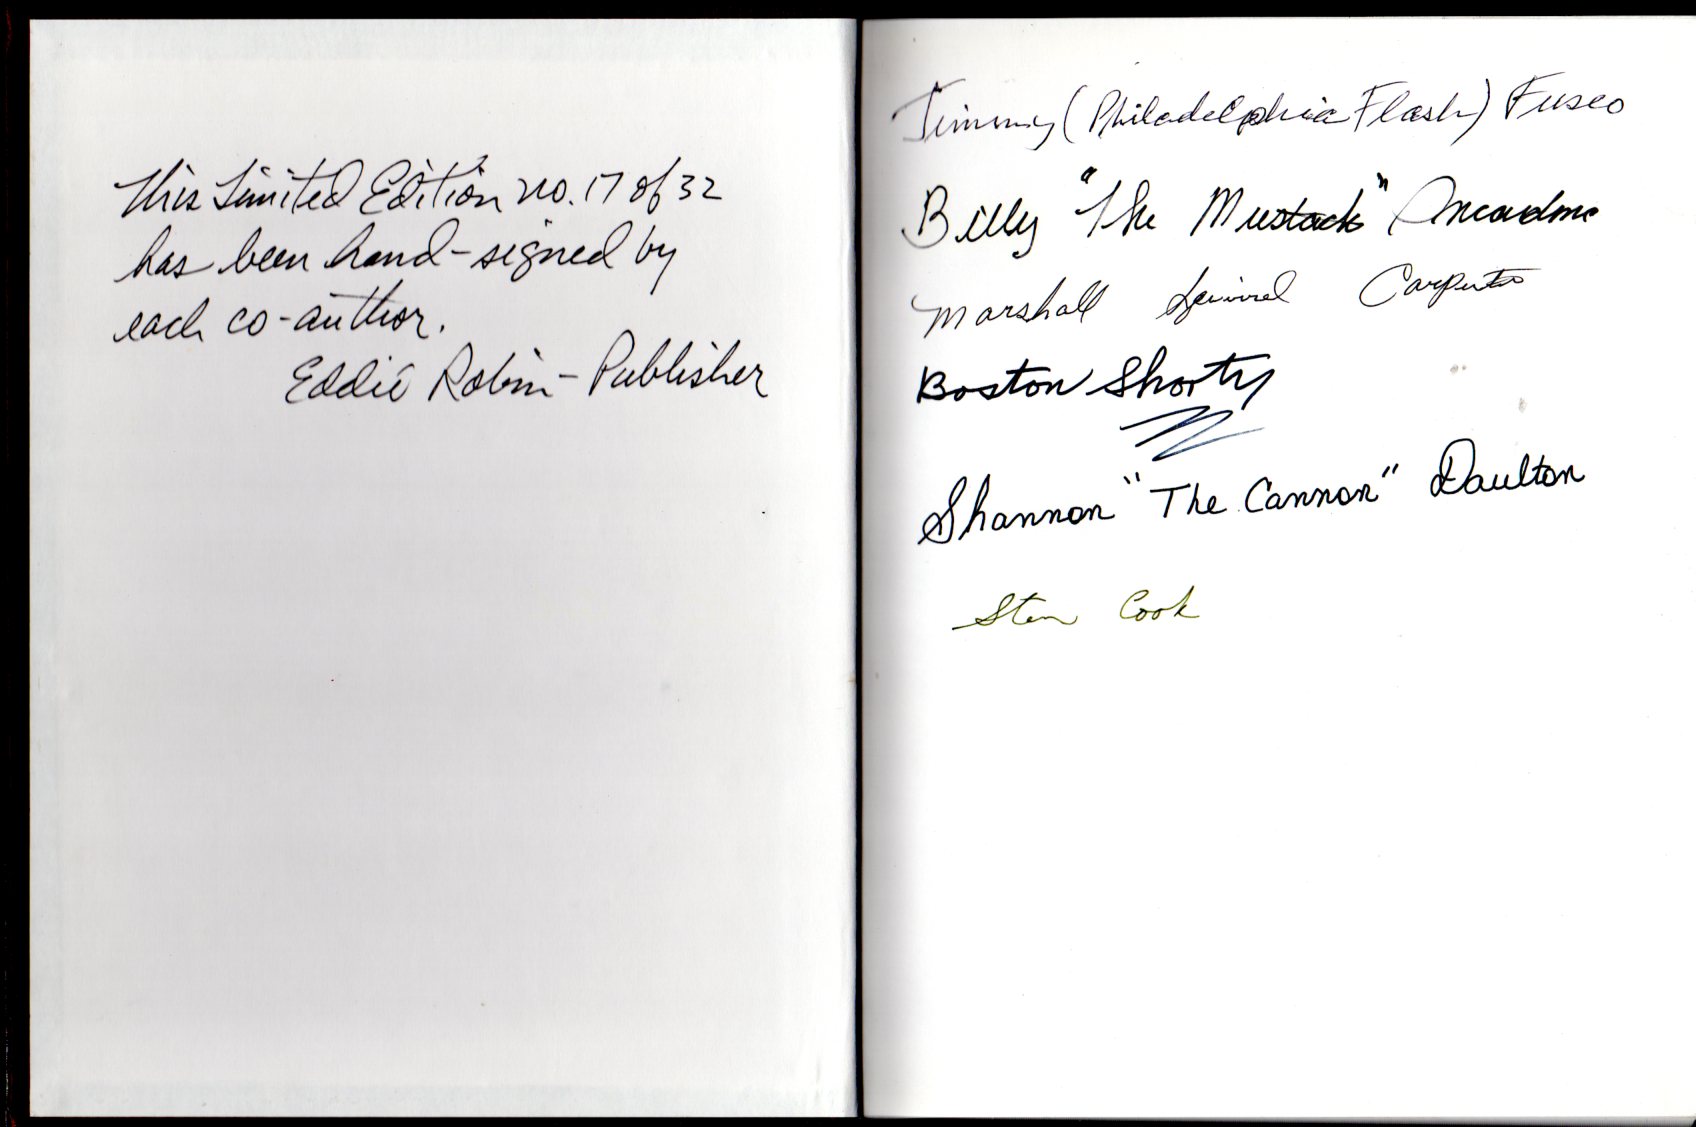 This Limited Edition no. 17 of 32
has been hand-signed by
each co-author.
Eddie Robin - Publisher
Jimmy (Philadelphia Flash) Fusco
Billy "The Mustach" Incardona
Marshall Squirrel Carpenter
Boston Shorty
Shannon "The Cannon" Daulton
Stan Cook